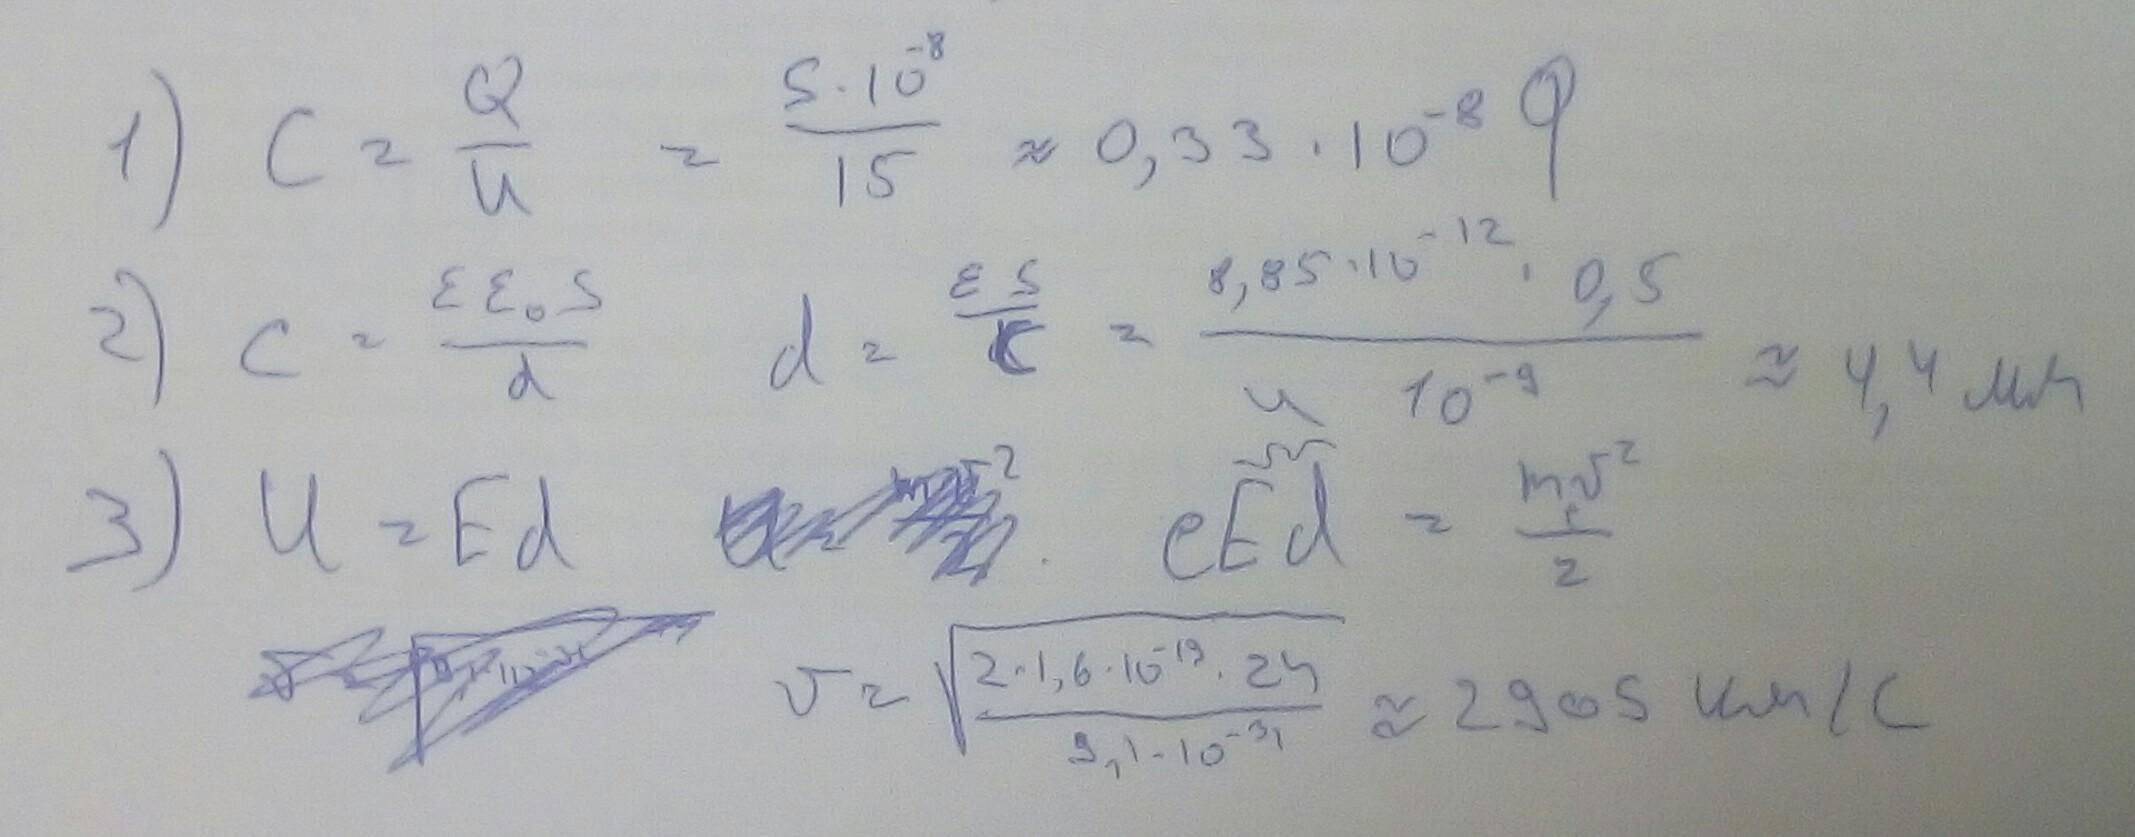 1) C = Q/U = 5·10⁻⁸/15 ≈ 0,33·10⁻⁸ Ф
2) C = εε₀S/d d = εS/C = 8,85·10⁻¹²·0,5/10⁻⁹ ≈ 4,4 мм
3) U = Ed eEd = mv²/2
U
v = √(2·1,6·10⁻¹⁹·24/9,1·10⁻³¹) ≈ 2905 км/с